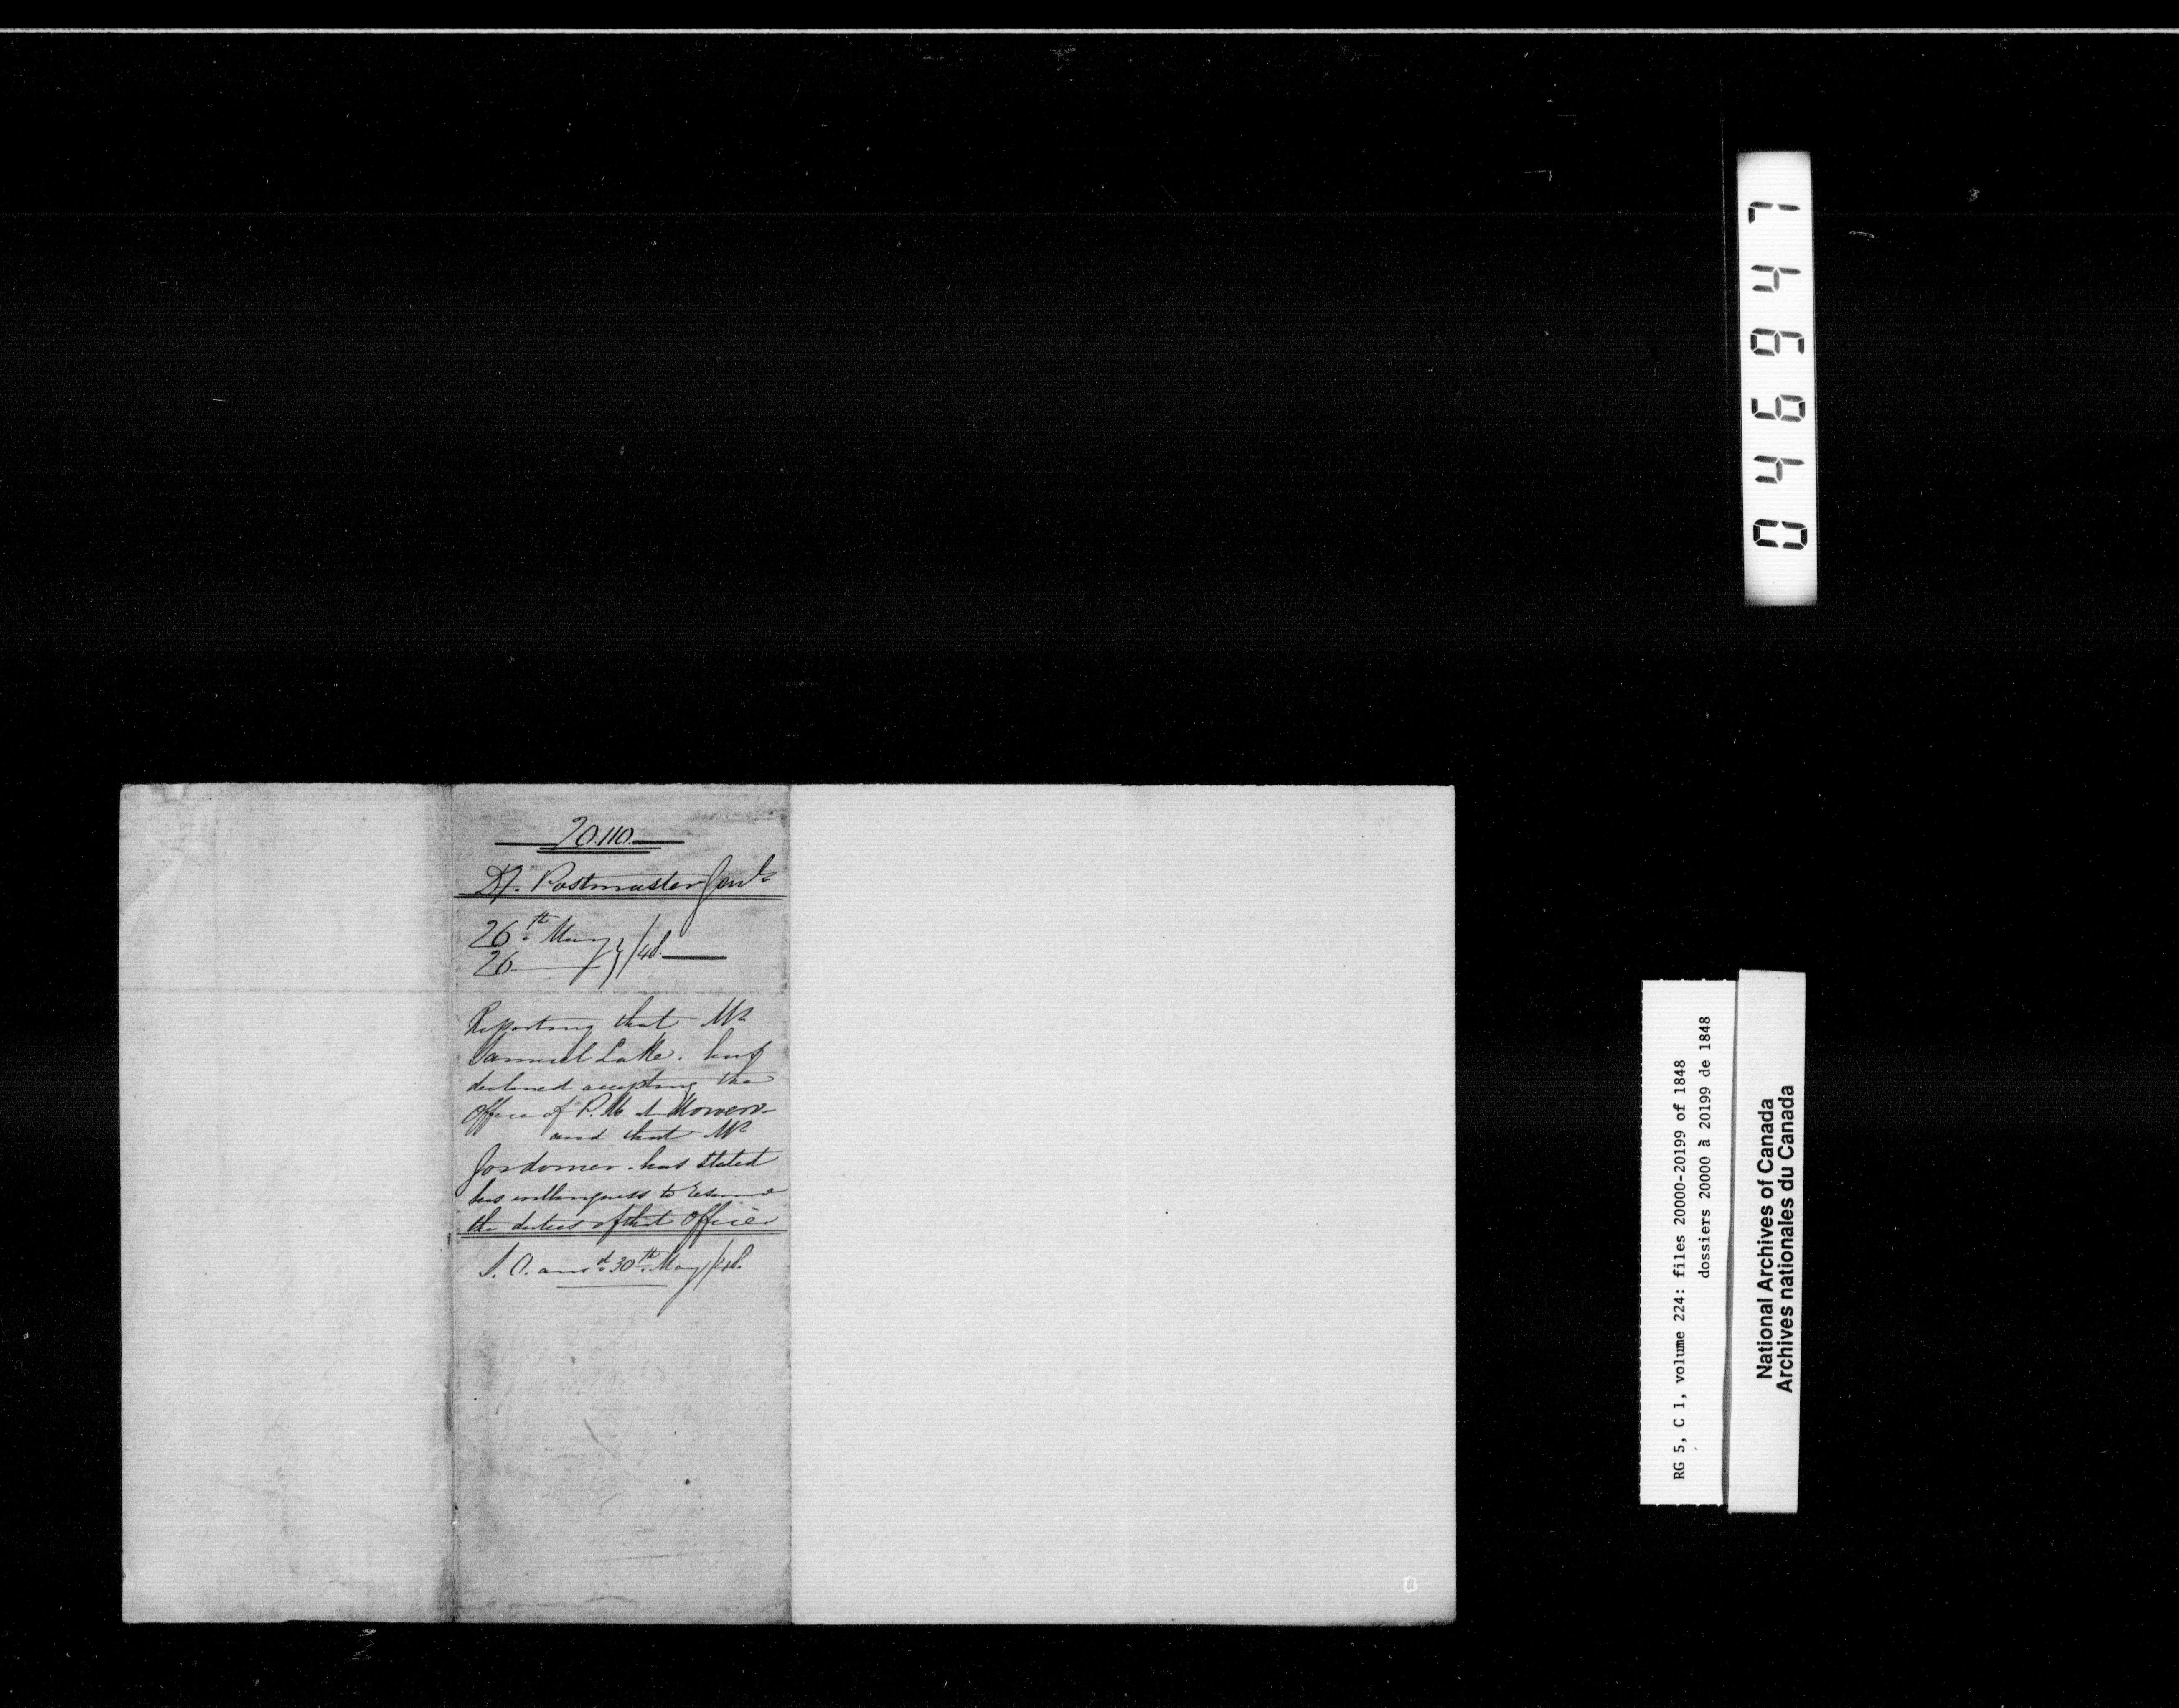 20.110
Dy. Postmaster Genl.
26th May } /48.
26
Reporting that Mr
Samuel Lake. has
declined accepting the
Office of P.M. at Moven
and that Mr
Gordonier has stated
his willingness to resume
the duties of that Office
S.O. ansd. 30th May/48.
046947
RG 5, C 1, volume 224: files 20000-20199 of 1848
dossiers 20000 à 20199 de 1848
National Archives of Canada
Archives nationales du Canada